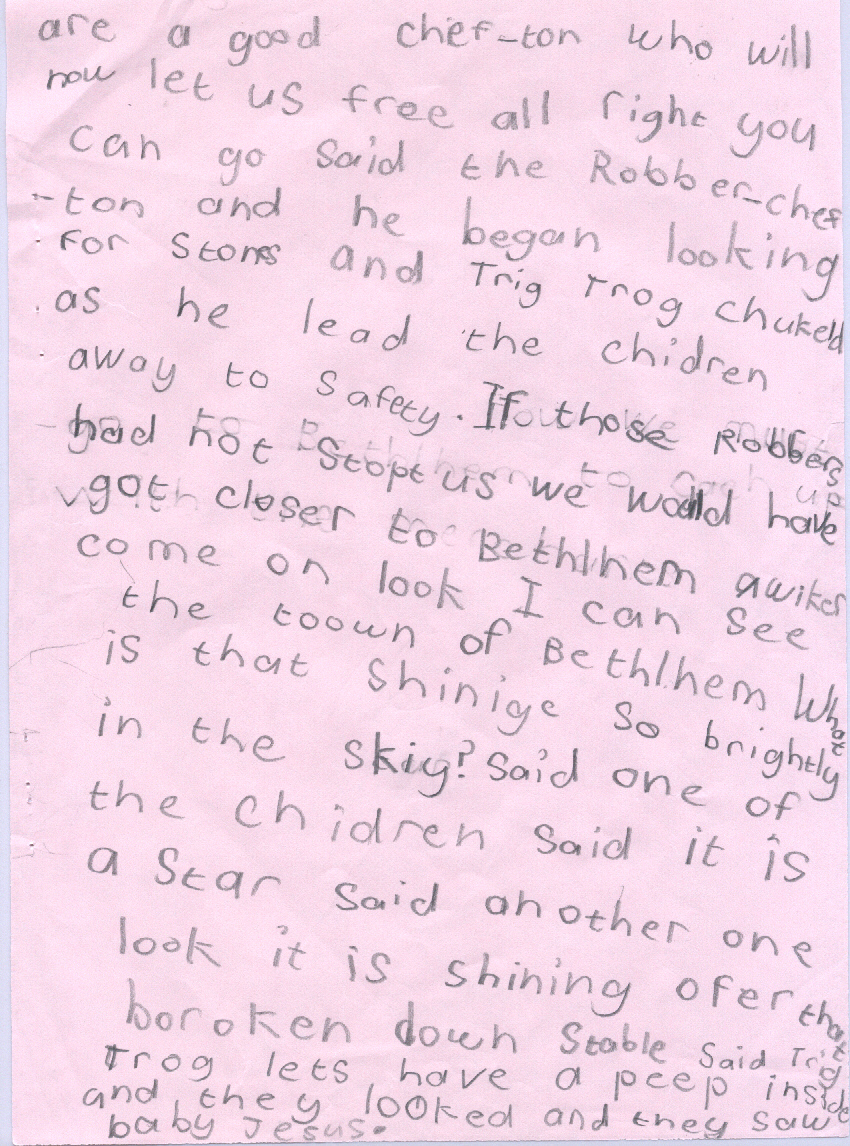 are a good chef-ton who will
now let us free all right you
can go said the Robber-chef
-ton and he began looking
for stones and Trig Trog chukeld
as he lead the chidren
away to safety. If those Robbers
had not stopt us we would have
got closer to Bethlhem awiker
come on look I can see
the toown of Bethlhem What
is that shinige so brightly
in the skiy? said one of
the chidren said it is
a star said another one
look it is shining ofer that
boroken down stable said Trig
Trog lets have a peep inside
and they looked and they saw
baby Jesus.